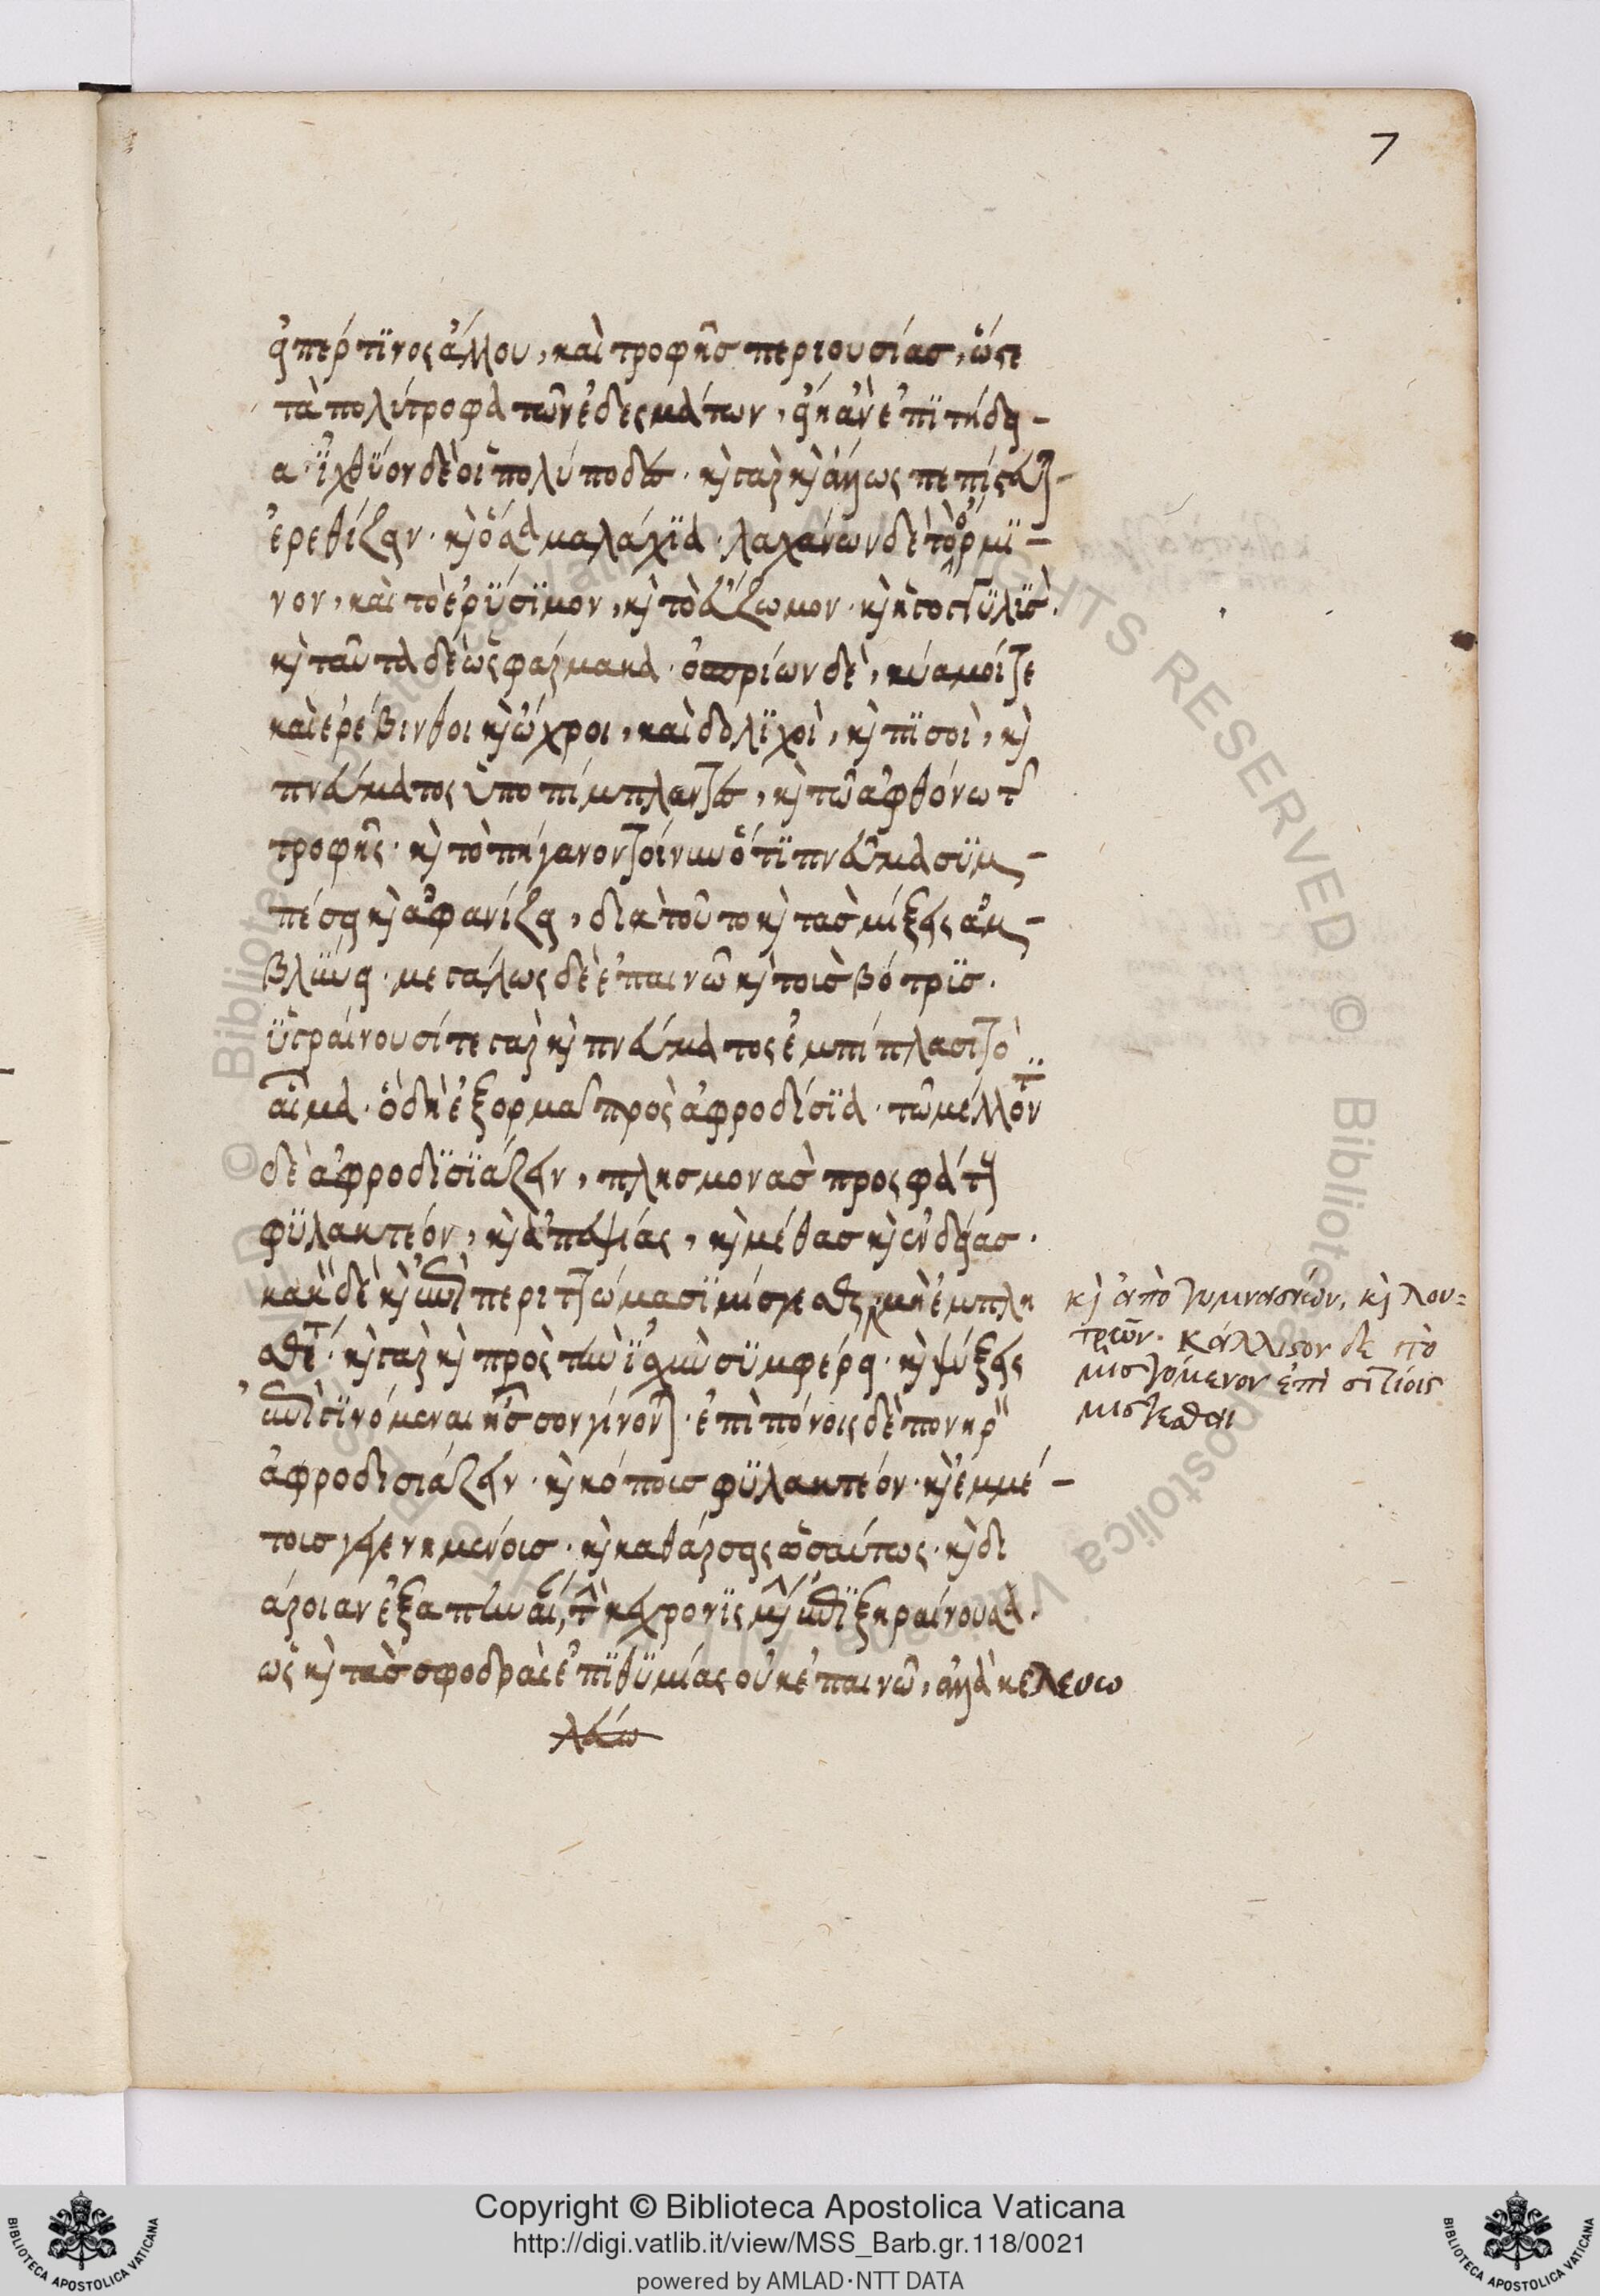 7
εἴπερ τινὸς ἄλλου, καὶ τροφῆς περιουσίας, ὥστε
τὰ πολύτροφα τῶν ἐδεσμάτων, εἴη ἂν ἐπιτήδει-
α· ἰχθύων δὲ οἱ πολύποδες· καὶ γὰρ καὶ ἄλλως πεπίστευνται
ἐρεθίζειν· καὶ ὅσα μαλάκια· λαχάνων δὲ τὸ ὅρμι-
νον, καὶ τὸ ἐρύσιμον, καὶ τὸ εὔζωμον· καὶ ἡ γογγυλίς·
καὶ ταῦτα δὲ ὡς φάρμακα· ὀσπρίων δὲ, κύαμοί τε
καὶ ἐρέβινθοι καὶ ὦχροι, καὶ δολιχοὶ, καὶ πισοὶ, καὶ
πνεύματος ὑποπιμπλαντες, καὶ τῷ ἀφθόνῳ τῆς
τροφῆς· καὶ τὸ πήγανον τοίνυν ὅτι πνεῦμα συμ-
πέσσει καὶ ἀφανίζει, διὰ τοῦτο καὶ τὰς μίξεις ἀμ-
βλύνει· μεγάλως δὲ ἐπαινῶ καὶ τοὺς βότρυς·
ὑγραίνουσί τε γὰρ καὶ πνεύματος ἐμπιπλᾶσι τὸ
αἷμα· ὃ δὴ ἐξορμᾷ πρὸς ἀφροδίσια· τῶ μέλλοντι
δὲ ἀφροδισιάζειν, πλησμονὰς
φυλακτέον, καὶ ἀπεψίας, καὶ μέθας καὶ ἐνδείας·
κακὸν δὲ καὶ ἐπὶ περιττώμασι μίσγεσθαι μὴ ἐμπλη
· καὶ γὰρ καὶ πρὸς τὴν ἰσχὺν συμφέρει· καὶ ψύξεις
ἐπιγινόμεναι ἧσσον γίνονται· ἐπὶ πόνοις δὲ πονηρὸν
ἀφροδισιάζειν· καὶ κόποις φυλακτέον· καὶ ἐμμέ-
τοις γεγενημένοις· καὶ καθάρσεις ὡσαύτως· καὶ δι
άρροιαν ἐξαπιναί,
ὡς καὶ τὰς σφοδρὰς ἐπιθυμίας οὐκ ἐπαινῶ, ἀλλὰ κελευω
λεύω
καὶ ἀπὸ γυμνασίων, καὶ λου=
τρῶν. κάλλιστον δὲ τὸ
μισγόμενον ἐπὶ σιτίοις
μισγεσθαι
Copyright © Biblioteca Apostolica Vaticana
http://digi.vatlib.it/view/MSS_Barb.gr.118/0021
powered by AMLAD·NTT DATA
BIBLIOTECA APOSTOLICA VATICANA
BIBLIOTECA APOSTOLICA VATICANA